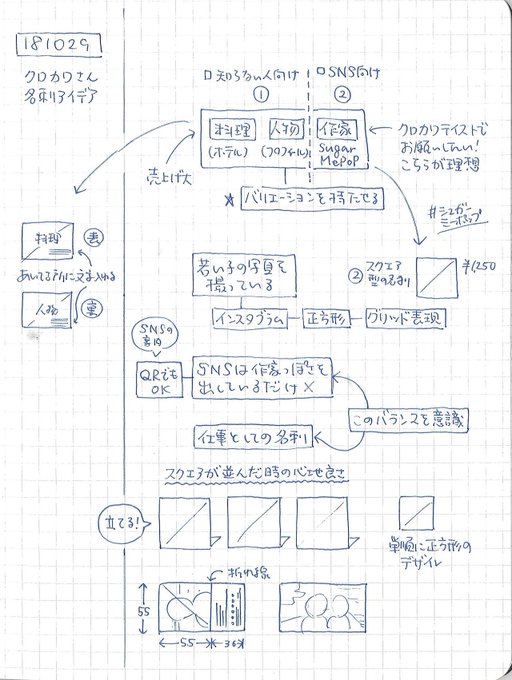 181029
クロカワさん
名刺アイデア
□知らない人向け
□SNS向け
①
②
料理
人物
作家
(ホテル)
(プロフィール)
sugar
MePoP
売上げ大
クロカワテイストで
お願いしたい!
こちらが理想
★
バリエーションを持たせる
#シュガー
ミーポップ
料理
表
あいてるところに文字入れる
人物
裏
②
スクエア
型の名刺
¥1250
若い子の写真を
撮っている
インスタグラム
正方形
グリッド表現
SNSの
QRでも
OK
SNSは作家っぽさを
出しているだけ×
このバランスを意識
仕事としての名刺
スクエアが並んだ時の心地良さ
立てる!
単純に正方形の
デザイン
折れ線
55
55
36